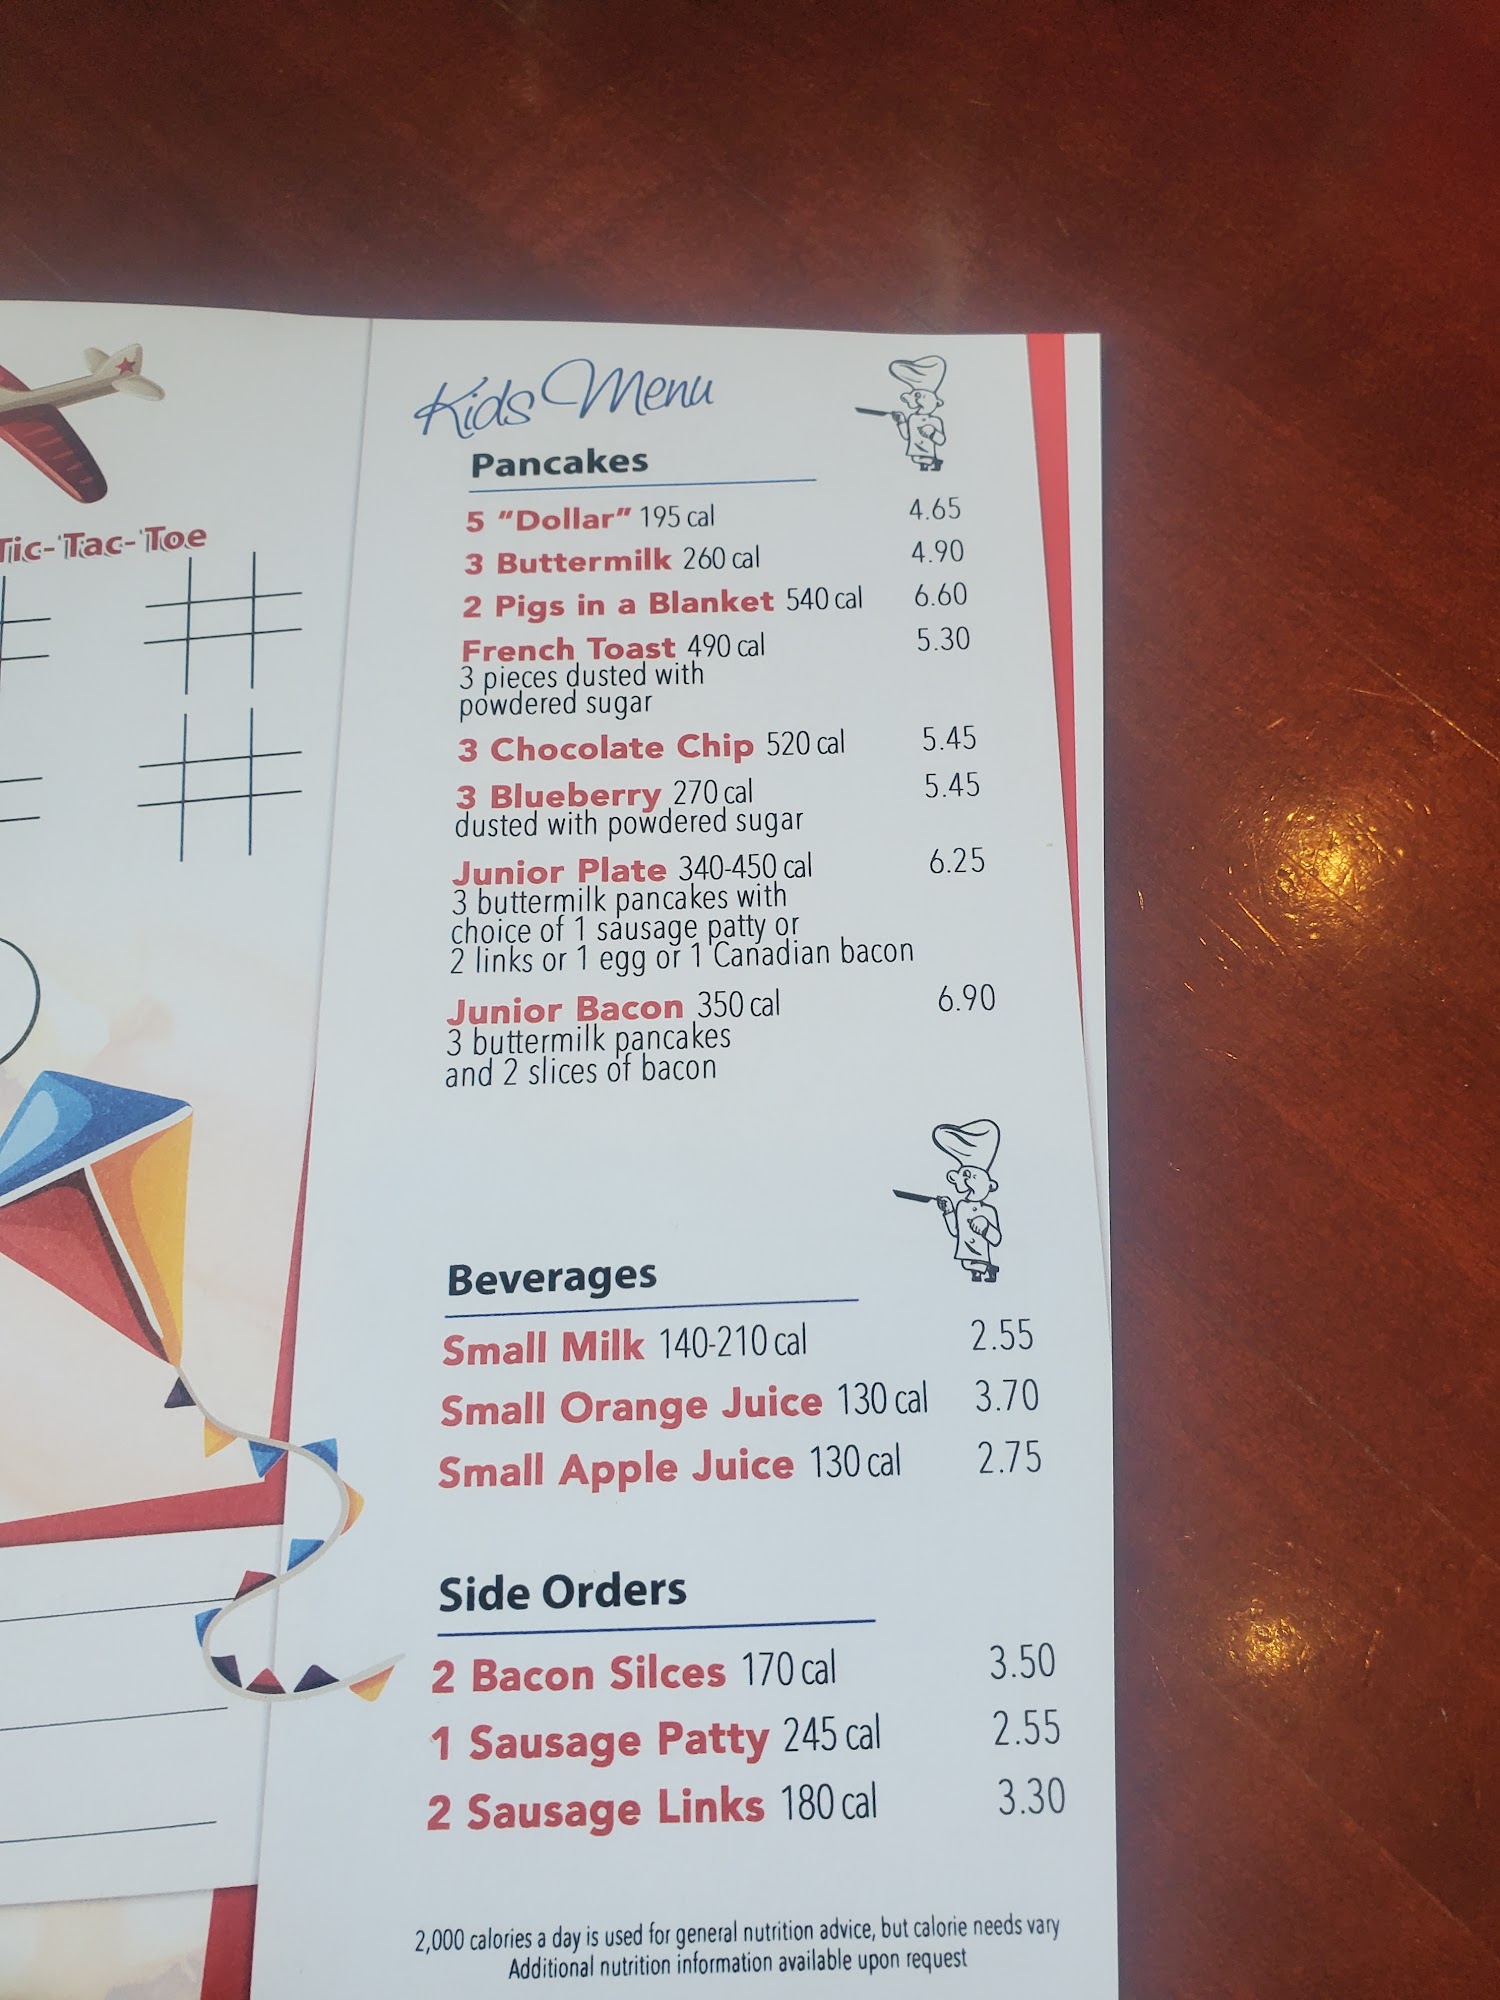 Tic-Tac-Toe
Kids Menu
Pancakes
5 "Dollar" 195 cal 4.65
3 Buttermilk 260 cal 4.90
2 Pigs in a Blanket 540 cal 6.60
French Toast 490 cal 5.30
3 pieces dusted with
powdered sugar
3 Chocolate Chip 520 cal 5.45
3 Blueberry 270 cal 5.45
dusted with powdered sugar
Junior Plate 340-450 cal 6.25
3 buttermilk pancakes with
choice of 1 sausage patty or
2 links or 1 egg or 1 Canadian bacon
Junior Bacon 350 cal 6.90
3 buttermilk pancakes
and 2 slices of bacon
Beverages
Small Milk 140-210 cal 2.55
Small Orange Juice 130 cal 3.70
Small Apple Juice 130 cal 2.75
Side Orders
2 Bacon Silces 170 cal 3.50
1 Sausage Patty 245 cal 2.55
2 Sausage Links 180 cal 3.30
2,000 calories a day is used for general nutrition advice, but calorie needs vary
Additional nutrition information available upon request